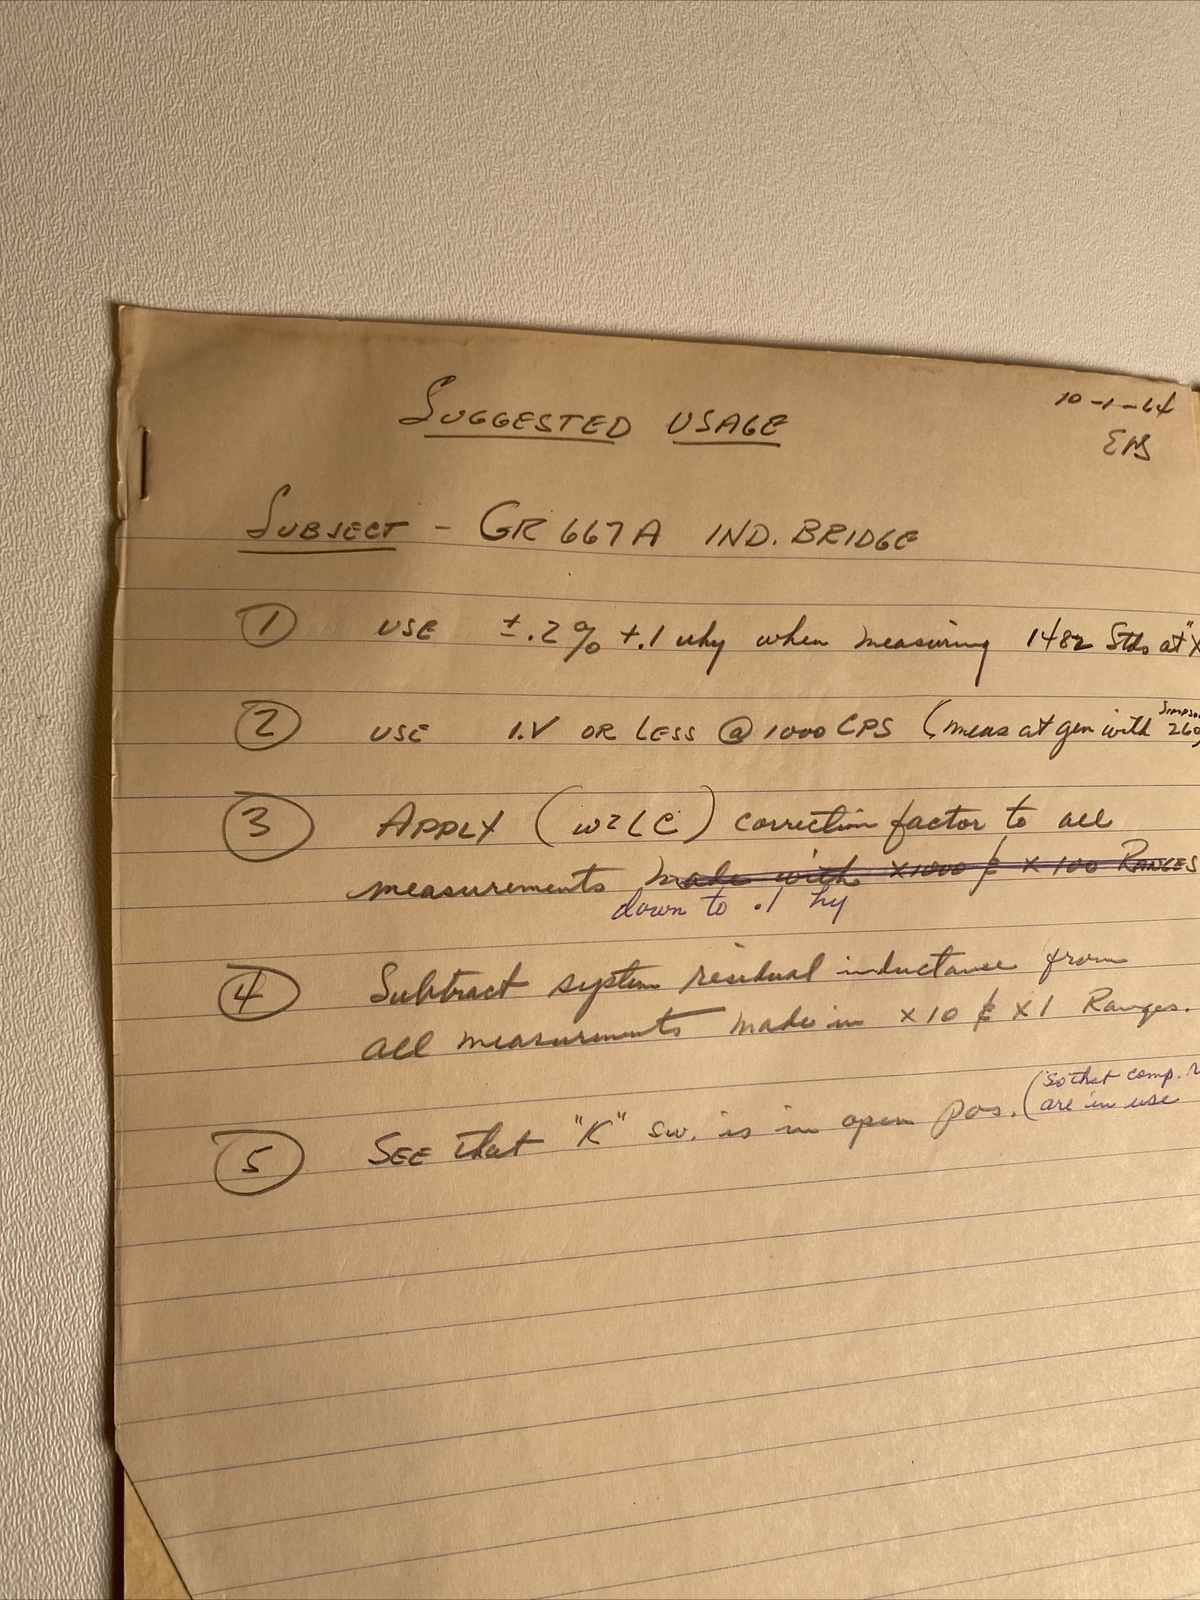 SUGGESTED USAGE
10-1-64
SUBJECT - GR 667A IND. BRIDGE
① USE ±.2% +.1 uhy when measuring 1482 Stds at "X
② USE 1.V OR LESS @ 1000 CPS (meas at gen with Simpson 260
③ APPLY (w2LC) correction factor to all
measurements made with X1000 & X 100 RANGES
down to .1 hy
④ Subtract system residual inductance from
all measurements made in X10 & X1 Ranges.
⑤ SEE that "K" sw. is in open pos. (so that comp.
are in use